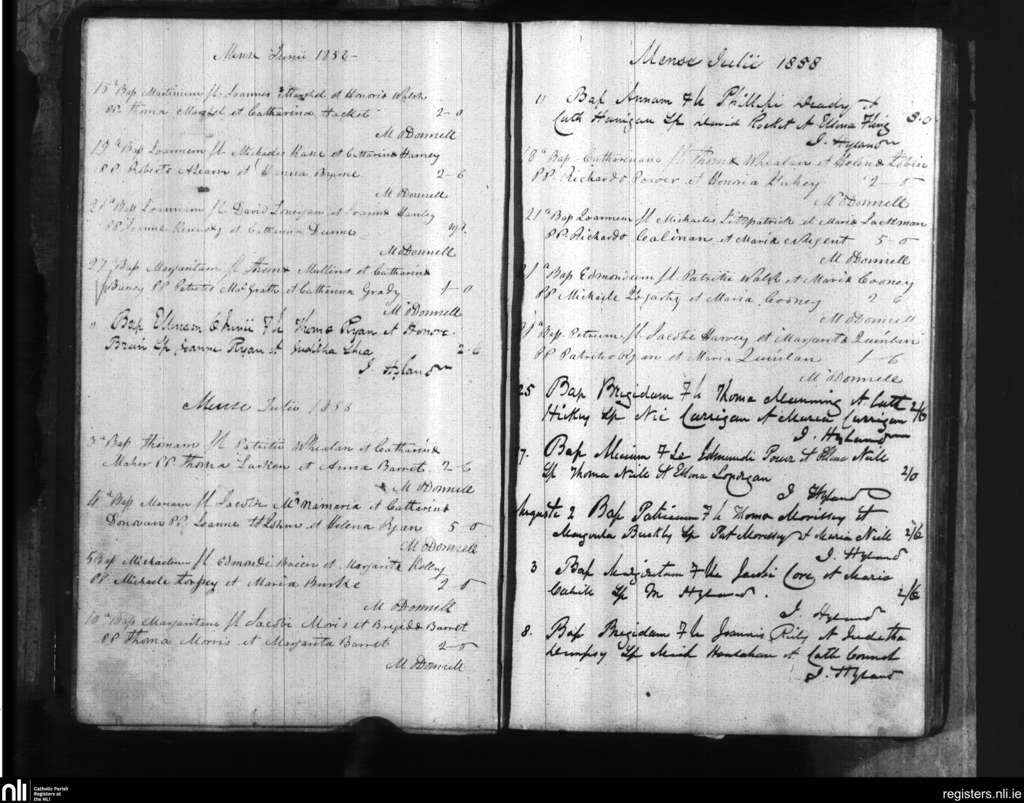 Mense Junii 1858
15ª Bap Martinum fl Joannes et Honoria Walsh
PP. Thoma et Catharina Hacket 2-0
M O'Donnell
19ª Bap Joannem fl Michaelis Kane et Catharina Harney
PP Roberto Ahearn et Hanna Byrne 2-6
M O'Donnell
21ª Bap Joannem fl David Lonergan et Joanna Hanley
PP Kennedy et Catherina
M O'Donnell
27ª Bap Margaritam fl Thoma Mullins et Catharina
PP Patritio McGrath et Catherina Grady 1-0
M O'Donnell
" Bap Ellenam 6 Junii F le Thoma Ryan et Honora
Brien Sp Joanne Ryan et Juditha Shea 2-6
J Hyland
Mense Julio 1858
3ª Bap Thomam fl Patritii Whealan et Catharina
Maher PP Thoma Larkin et Anna Barret 2-6
M O'Donnell
4ª Bap Mariam fl Jacobi McNamara et Catherina
Donovan PP. et Helena Ryan 5-0
M O'Donnell
5 Bap Michaelem fl Edmondi et Margarita Kelley
PP Michaele Torpey et Maria Burke 2 0
M O'Donnell
10ª Bap Margaritam fl Jacobi Moris et Brigida Barret
PP Thoma Morris et Margarita Barret 2-0
M O'Donnell
Mense Julii 1858
11 Bap Annam F le Phillipi Deady et
Cath Hanigan Sp David Rocket et Ellena Fling 3-0
J. Hyland
18ª Bap Catharinam fl Thoma Whealan et Helena Tobin
PP. Richardo Power et Honoria Hickey 2-0
M O'Donnell
21ª Bap Joannem fl Michaelis Fitzpatrick et Maria
PP. Richardo Calinan et Maria Nugent 5-0
M O'Donnell
21ª Bap Edmondum fl Patritii Walsh et Maria Cooney
PP Michaele Fogarty et Maria Cooney 2 6
M O'Donnell
21ª Bap Petrum fl Jacobi Harvey et Margarita Quinlin
PP Patritio Ryan et Maria Quinlan 1-6
M O'Donnell
25 Bap Brigidam F le Thoma Manning et Cath 2/6
Hickey Sp Nic Carrigan et Maria Carrigan
J. Hyland
7. Bap F Le Edmundi Power et Ellena Neill
Sp Thoma Neill et Ellena Londrigan 2/0
J Hyland
Auguste 2 Bap Patricium F le Thoma Morrissey et
Buckly Sp Pat Morrissy et Maria Neill 2/6
J. Hyland
3 Bap F le Jacobi et Maria
Cahill Sp M Hyland. 2/6
J Hyland
8. Bap Brigidam F le Joannis Rily et Judetha
Dempsy Sp Mich Hanlahan et Cath
J. Hyland
nli
Catholic Parish
Registers at
the NLI
registers.nli.ie